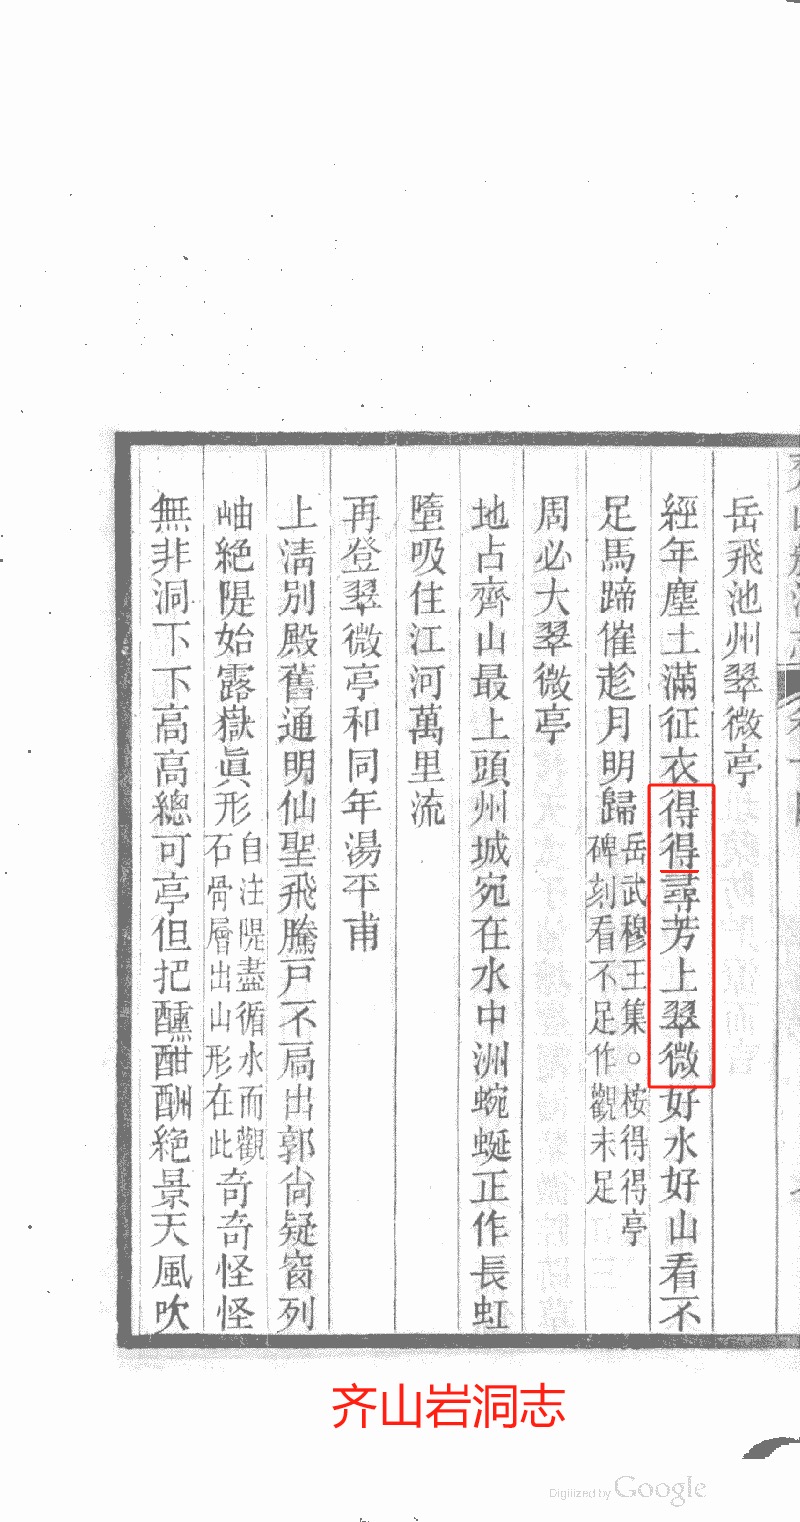 岳飛池州翠微亭
經年塵土滿征衣得得尋芳上翠微好水好山看不
足馬蹄催趁月明歸岳武穆王集。桉得得亭
碑刻看不足作觀未足
周必大翠微亭
地占齊山最上頭州城宛在水中洲蜿蜒正作長虹
墮吸住江河萬里流
再登翠微亭和同年湯平甫
上淸別殿舊通明仙聖飛騰戸不扃出郭尙疑窗列
岫絶隄始露嶽眞形自注隄盡循水而觀
石骨層出山形在此奇奇怪怪
無非洞下下高高總可亭但把醺酣酬絶景天風吹
齐山岩洞志
Digitized by Google